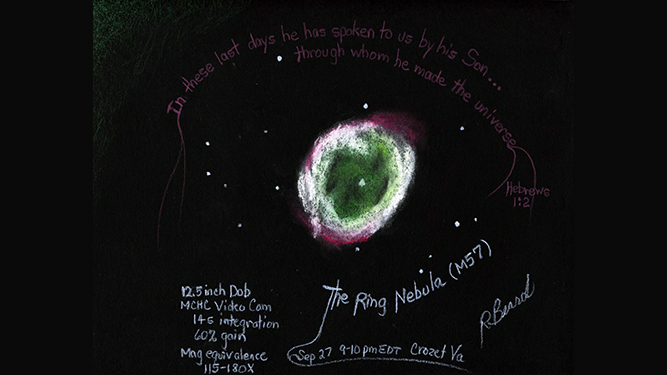 In these last days he has spoken to us by his Son...
through whom he made the universe
Hebrews
1:2
The Ring Nebula (M57)
12.5 inch Dob
MCHC Video Cam
14s integration
60% gain
Mag equivalence
115-180X
Sep 27 9-10 pm EDT Crozet Va